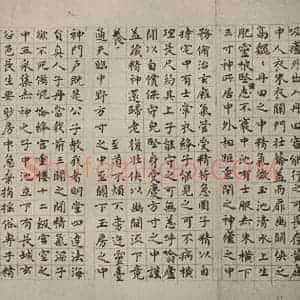 吸廬外出入丹田審能行之可長存黃庭
中人衣朱衣關門壯籥蓋兩扉幽闕俠之
高巍巍丹田之中精氣微玉池清水上生
肥靈根堅志不衰中池有士服赤朱橫下
三寸神所居中外相距重閉之神廬之中
務脩治玄廱氣管受精符急固子精以自
持宅中有士常衣絳子能見之可不病橫
理長尺約其上子能守之可無恙呼噏廬
間以自償保守完堅身受慶方寸之中謹
蓋藏精神還歸老復壯俠以幽闕流下竟
養 至道不煩不旁迕靈臺
通天臨中野方寸之中至關下玉房之中
神門戶既是公子教我者明堂四達法海
員真人子丹當我前三關之間精氣深子
欲不死脩崑崙絳宮重樓十二級宮室之
中五采集赤神之子中池立下有長城玄
谷邑長生要眇房中急棄捐搖俗專子精